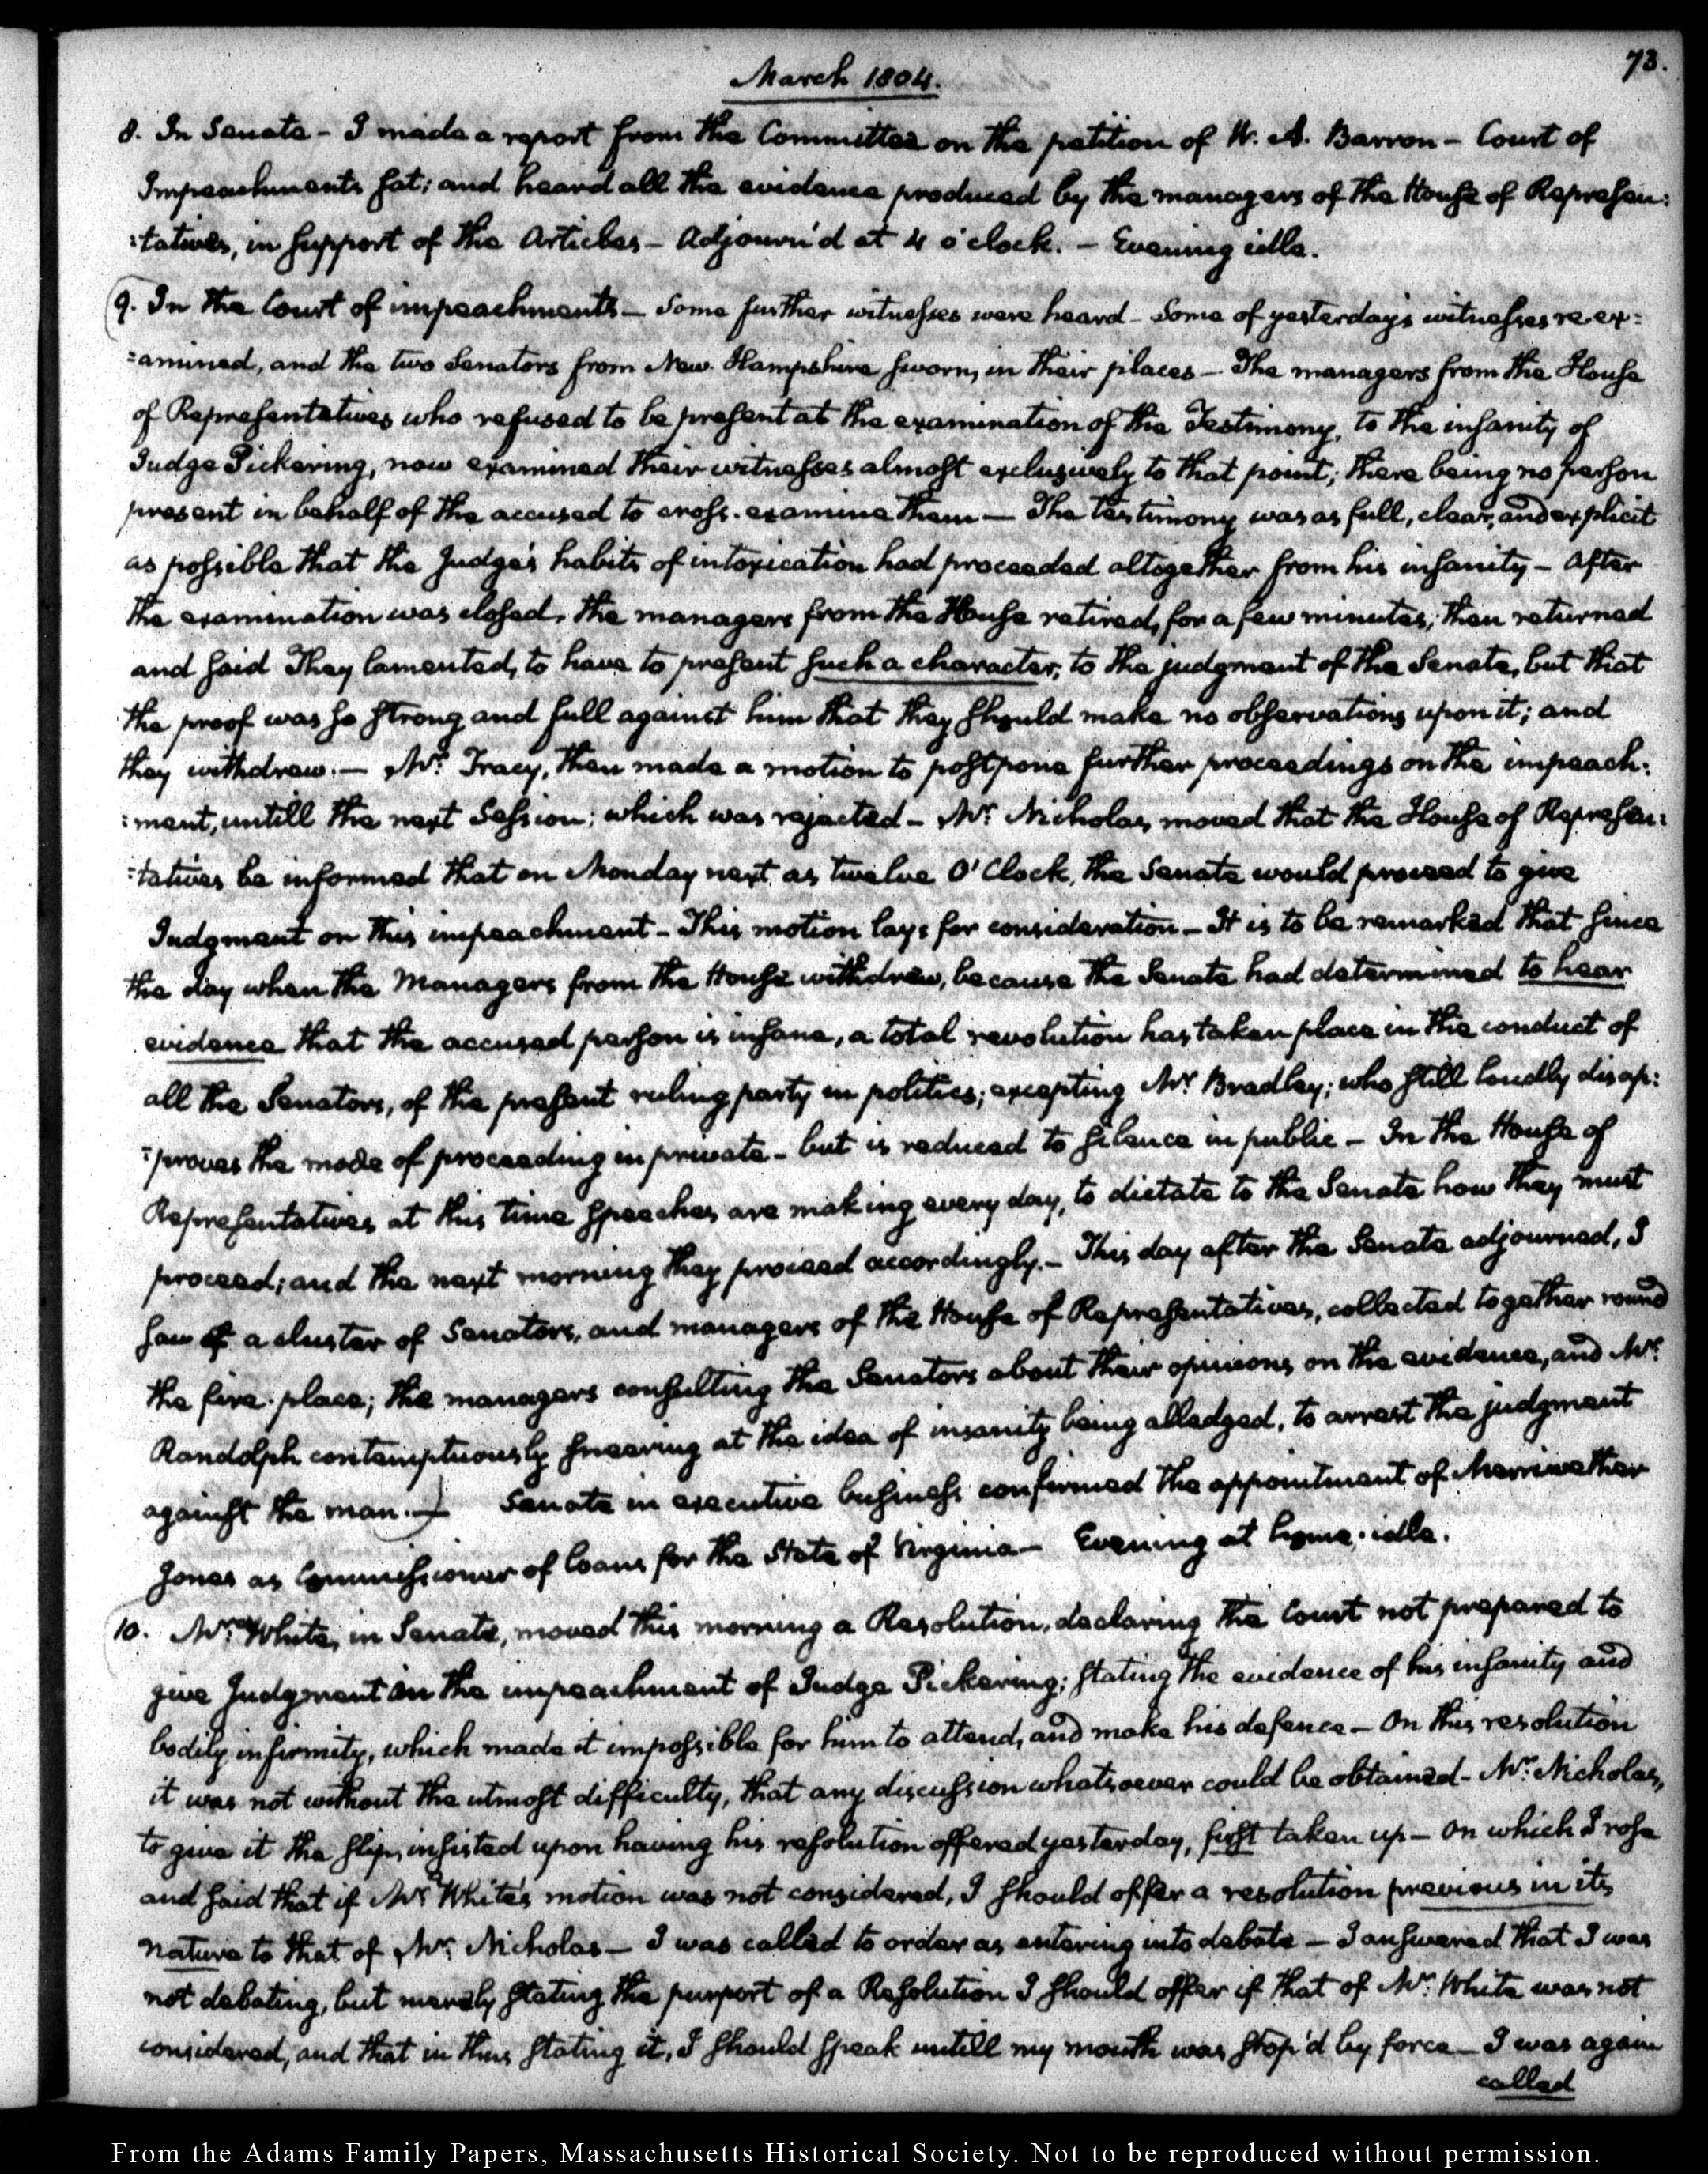 73.
March 1804.
8. In Senate - I made a report from the Committee on the petition of W. A. Barron - Court of
Impeachments sat; and heard all the evidence produced by the managers of the House of Represen:
:tatives, in support of the Articles - Adjourn'd at 4 o'clock. - Evening idle.
9. In the Court of impeachments - Some further witnesses were heard - Some of yesterday's witnesses re ex:
:amined, and the two Senators from New-Hampshire sworn, in their places - The managers from the House
of Representatives who refused to be present at the examination of the Testimony, to the insanity of
Judge Pickering, now examined their witnesses almost exclusively to that point; there being no person
present in behalf of the accused to cross-examine them - The testimony was as full, clear, and explicit
as possible that the Judge's habits of intoxication had proceeded altogether from his insanity - After
the examination was closed, the managers from the House retired, for a few minutes; then returned
and said They lamented, to have to present such a character, to the judgment of the Senate, but that
the proof was so strong and full against him that they should make no observations upon it; and
they withdrew. - Mr. Tracy, then made a motion to postpone further proceedings on the impeach:
:ment, untill the next Session; which was rejected - Mr. Nicholas, moved that the House of Represen:
:tatives be informed that on Monday next as twelve O'Clock, the Senate would proceed to give
Judgment on this impeachment - This motion lays for consideration - It is to be remarked that since
the day when the Managers from the House withdrew, because the Senate had determined to hear
evidence that the accused person is insane, a total revolution has taken place in the conduct of
all the Senators, of the present ruling party in politics; excepting Mr. Bradley; who still loudly disap:
:proves the mode of proceeding in private - but is reduced to silence in public - In the House of
Representatives at this time speeches are making every day, to dictate to the Senate how they must
proceed; and the next morning they proceed accordingly. - This day after the Senate adjourned, I
saw a cluster of Senators, and managers of the House of Representatives, collected together round
the fire-place; the managers consulting the Senators about their opinions on the evidence, and Mr.
Randolph contemptuously sneering at the idea of insanity being alledged, to arrest the judgment
against the man. - Senate in executive business confirmed the appointment of Merriwether
Jones as Commissioner of loans for the State of Virginia - Evening at home. idle.
10. Mr. White, in Senate, moved this morning a Resolution, declaring the Court not prepared to
give Judgment on the impeachment of Judge Pickering; stating the evidence of his insanity and
bodily infirmity, which made it impossible for him to attend, and make his defence - On this resolution
it was not without the utmost difficulty, that any discussion whatsoever could be obtained - Mr. Nicholas,
to give it the slip, insisted upon having his resolution offered yesterday, first taken up - On which I rose
and said that if Mr. White's motion was not considered, I should offer a resolution previous in its
nature to that of Mr. Nicholas - I was called to order as entering into debate - I answered that I was
not debating, but merely stating the purport of a Resolution I should offer if that of Mr. White was not
considered, and that in thus stating it, I should speak untill my mouth was stop'd by force - I was again
called
From the Adams Family Papers, Massachusetts Historical Society. Not to be reproduced without permission.